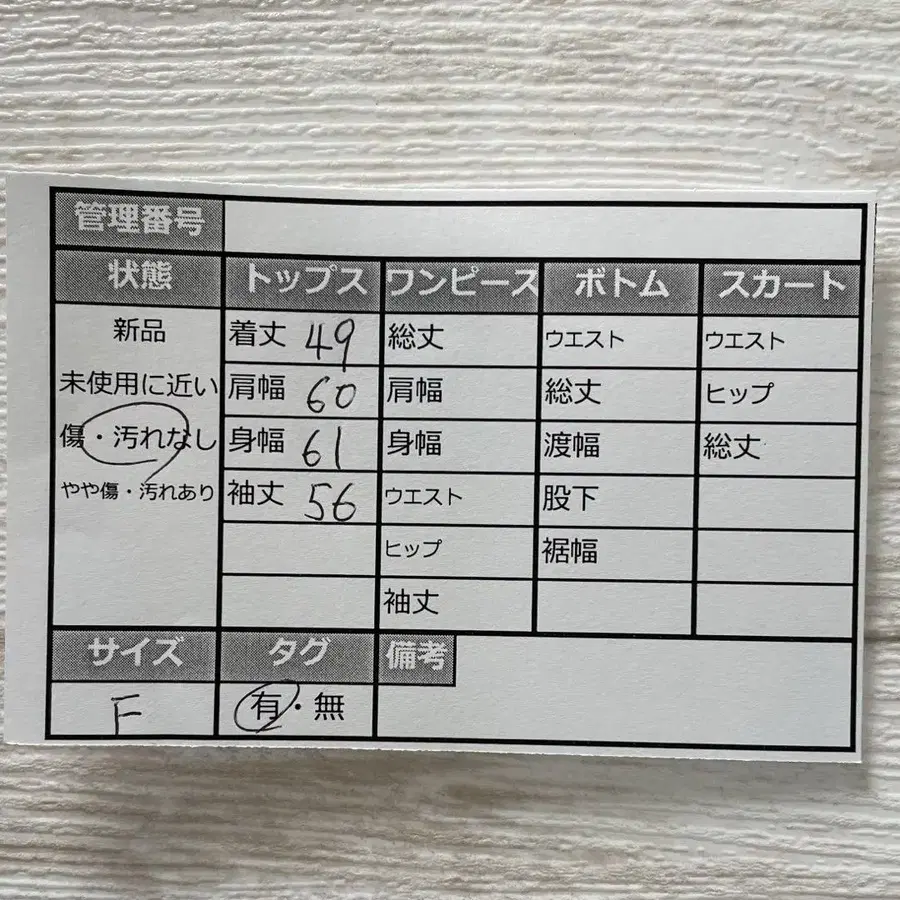 管理番号
状態 トップス ワンピース ボトム スカート
新品 着丈 49 総丈 ウエスト ウエスト
未使用に近い 肩幅 60 肩幅 総丈 ヒップ
傷・汚れなし 身幅 61 身幅 渡幅 総丈
やや傷・汚れあり 袖丈 56 ウエスト 股下
ヒップ 裾幅
袖丈
サイズ タグ 備考
F 有・無